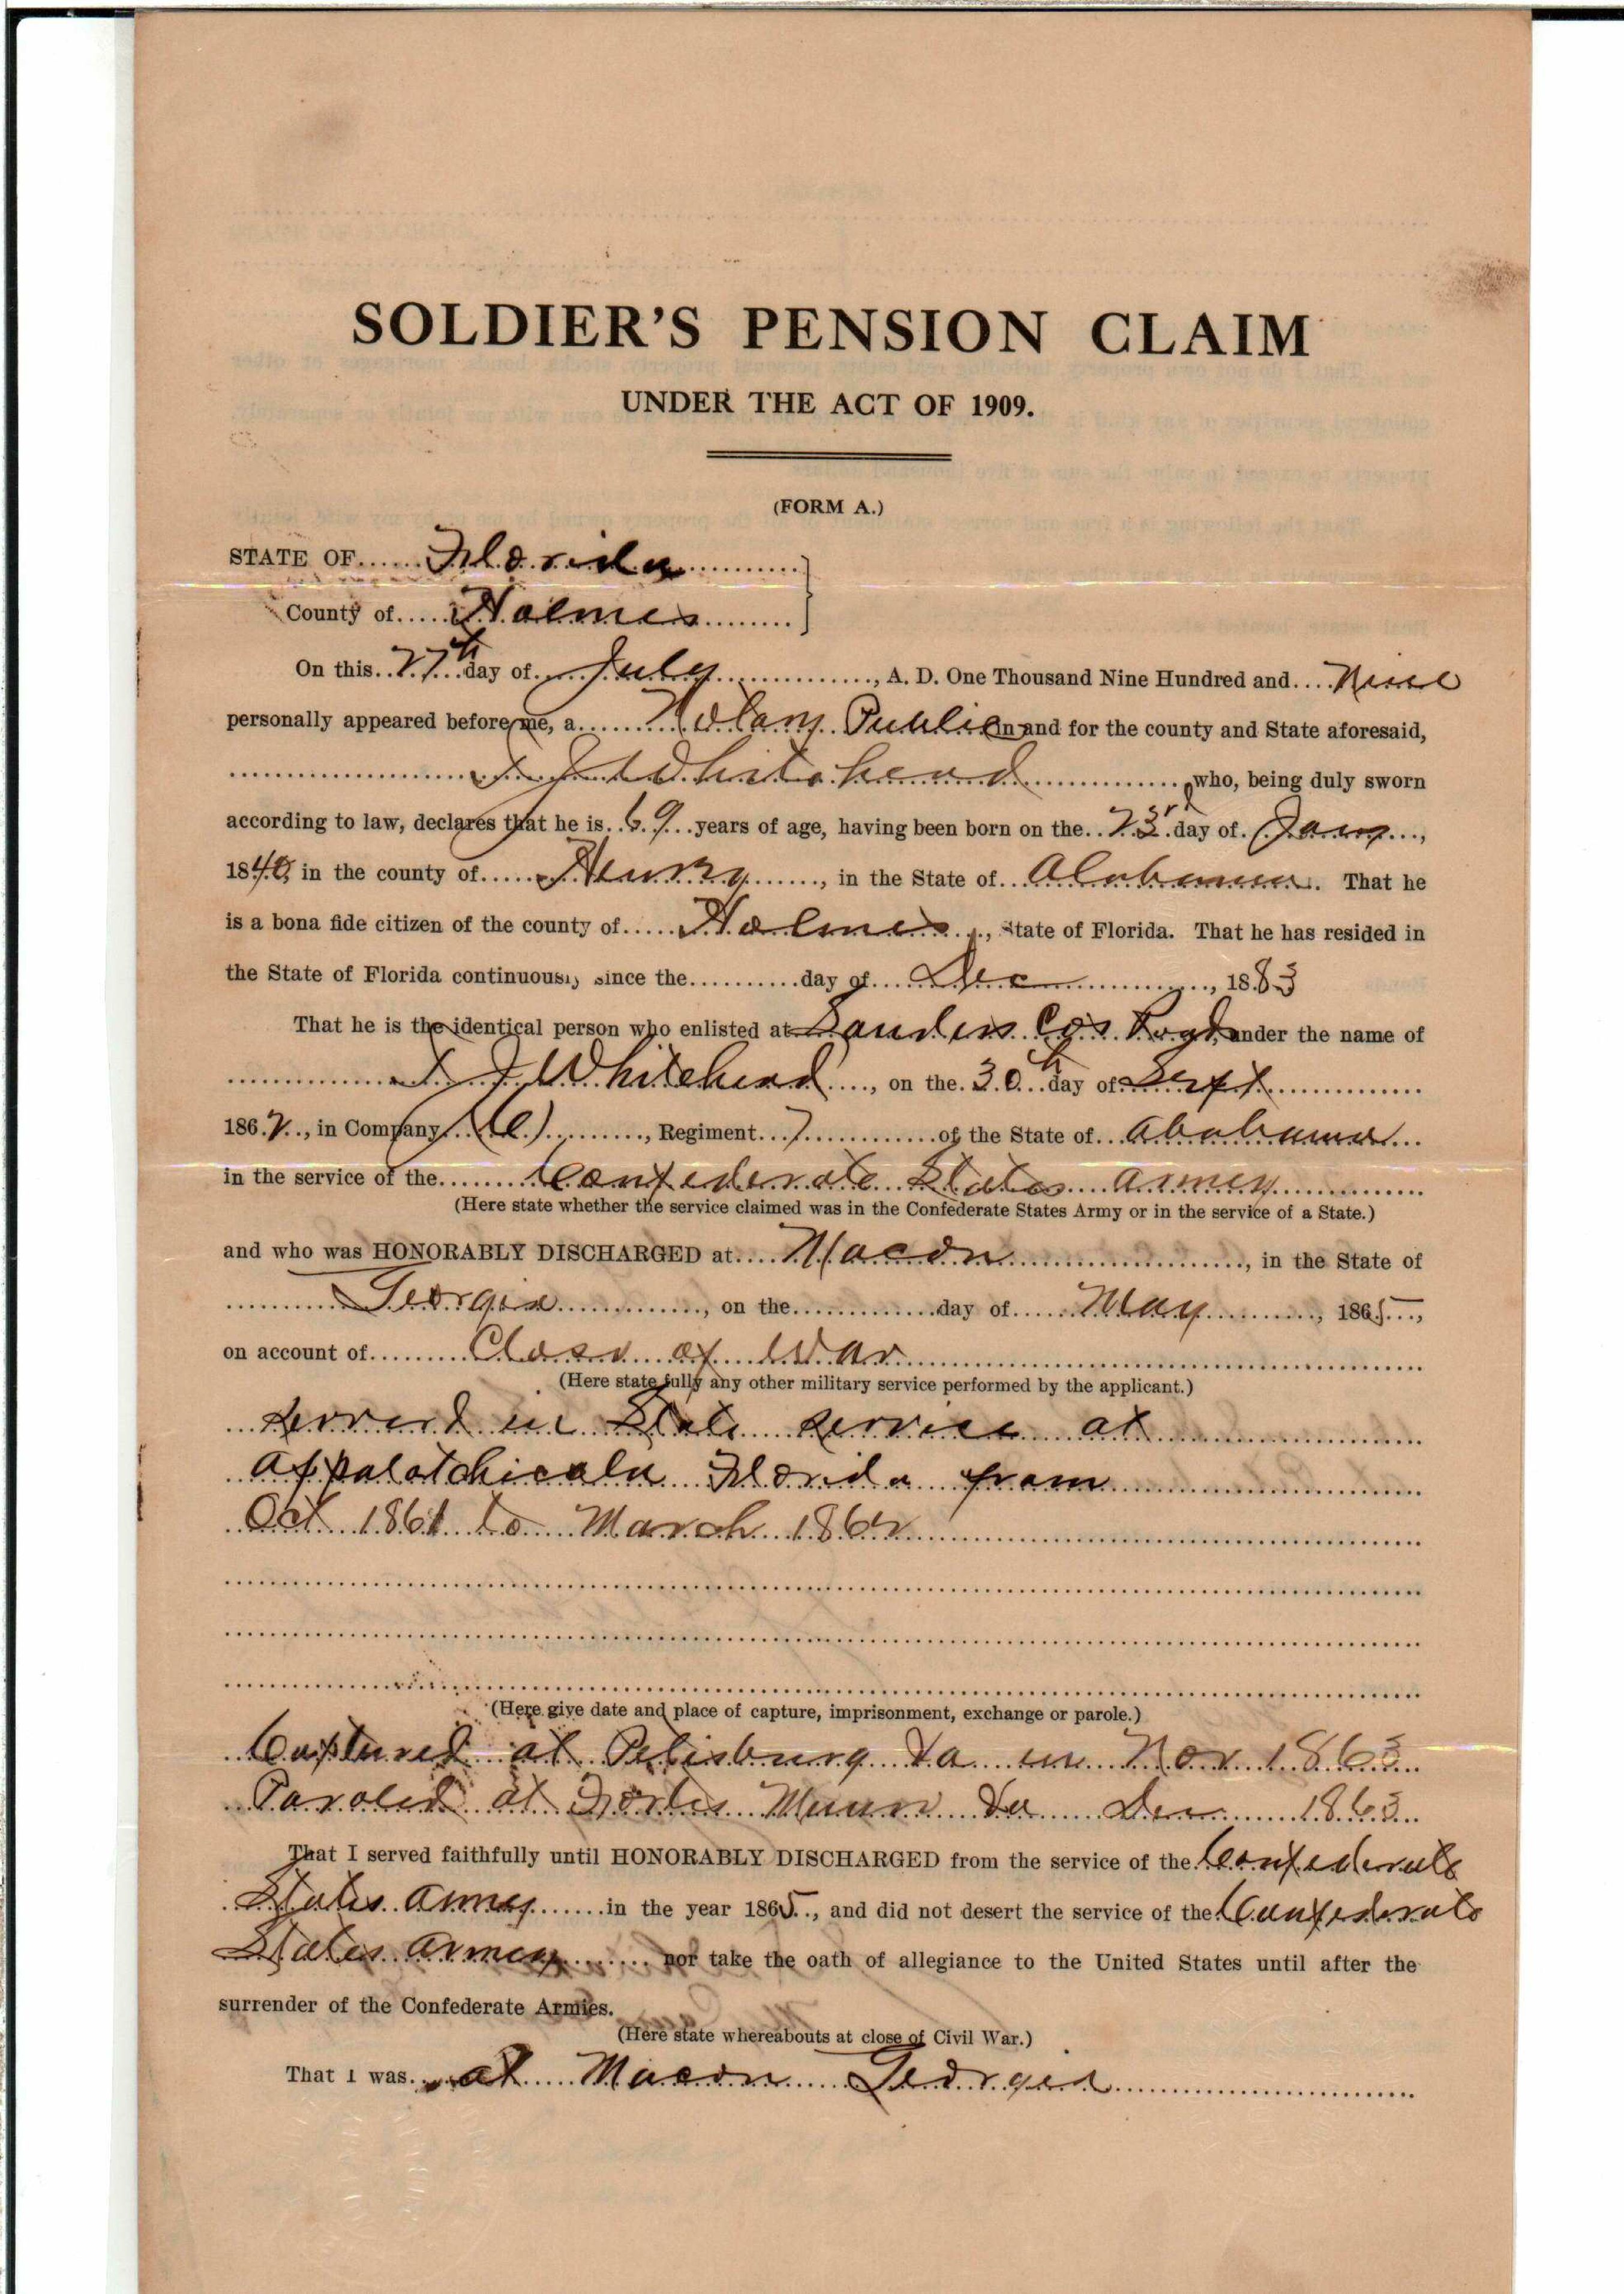 SOLDIER'S PENSION CLAIM
UNDER THE ACT OF 1909.
(FORM A.)
STATE OF Florida
County of Holmes
On this 27th day of July, A. D. One Thousand Nine Hundred and Nine
personally appeared before me, a Notary Public in and for the county and State aforesaid,
J Whitehead who, being duly sworn
according to law, declares that he is 69 years of age, having been born on the 23rd day of Jany,
1840, in the county of Henry, in the State of Alabama. That he
is a bona fide citizen of the county of Holmes, State of Florida. That he has resided in
the State of Florida continuously since the day of Dec, 1883
That he is the identical person who enlisted at Sanders under the name of
J Whitehead, on the 30th day of Sept
1862, in Company (C), Regiment 7 of the State of Alabama
in the service of the Confederate States Army
(Here state whether the service claimed was in the Confederate States Army or in the service of a State.)
and who was HONORABLY DISCHARGED at Macon, in the State of
Georgia, on the day of May, 1865,
on account of Close of War
(Here state fully any other military service performed by the applicant.)
served in State service at
Appalatchicola Florida from
Oct 1861 to March 1862
(Here give date and place of capture, imprisonment, exchange or parole.)
Captured at Petisburg Va in Nov 1863
Paroled at Va Dec 1863
That I served faithfully until HONORABLY DISCHARGED from the service of the Confederate
States Army in the year 1865, and did not desert the service of the Confederate
States Army nor take the oath of allegiance to the United States until after the
surrender of the Confederate Armies.
(Here state whereabouts at close of Civil War.)
That I was at Macon Georgia